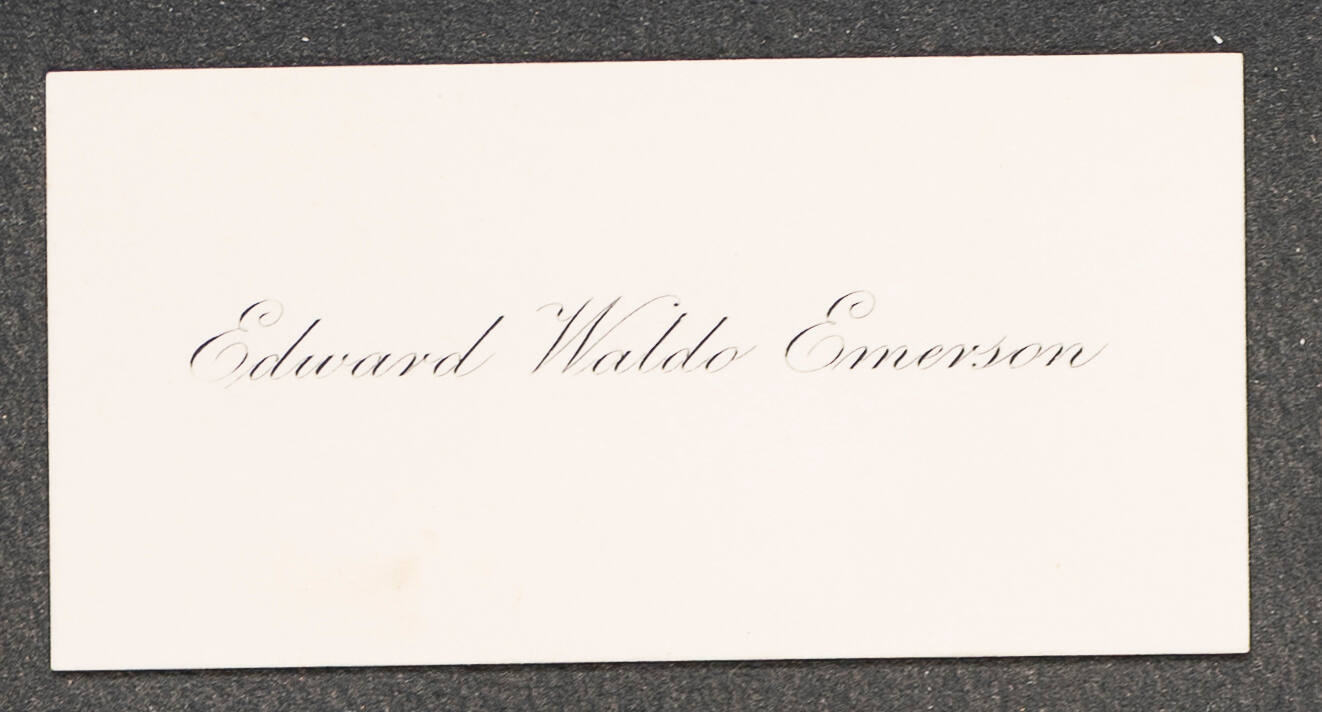 Edward Waldo Emerson